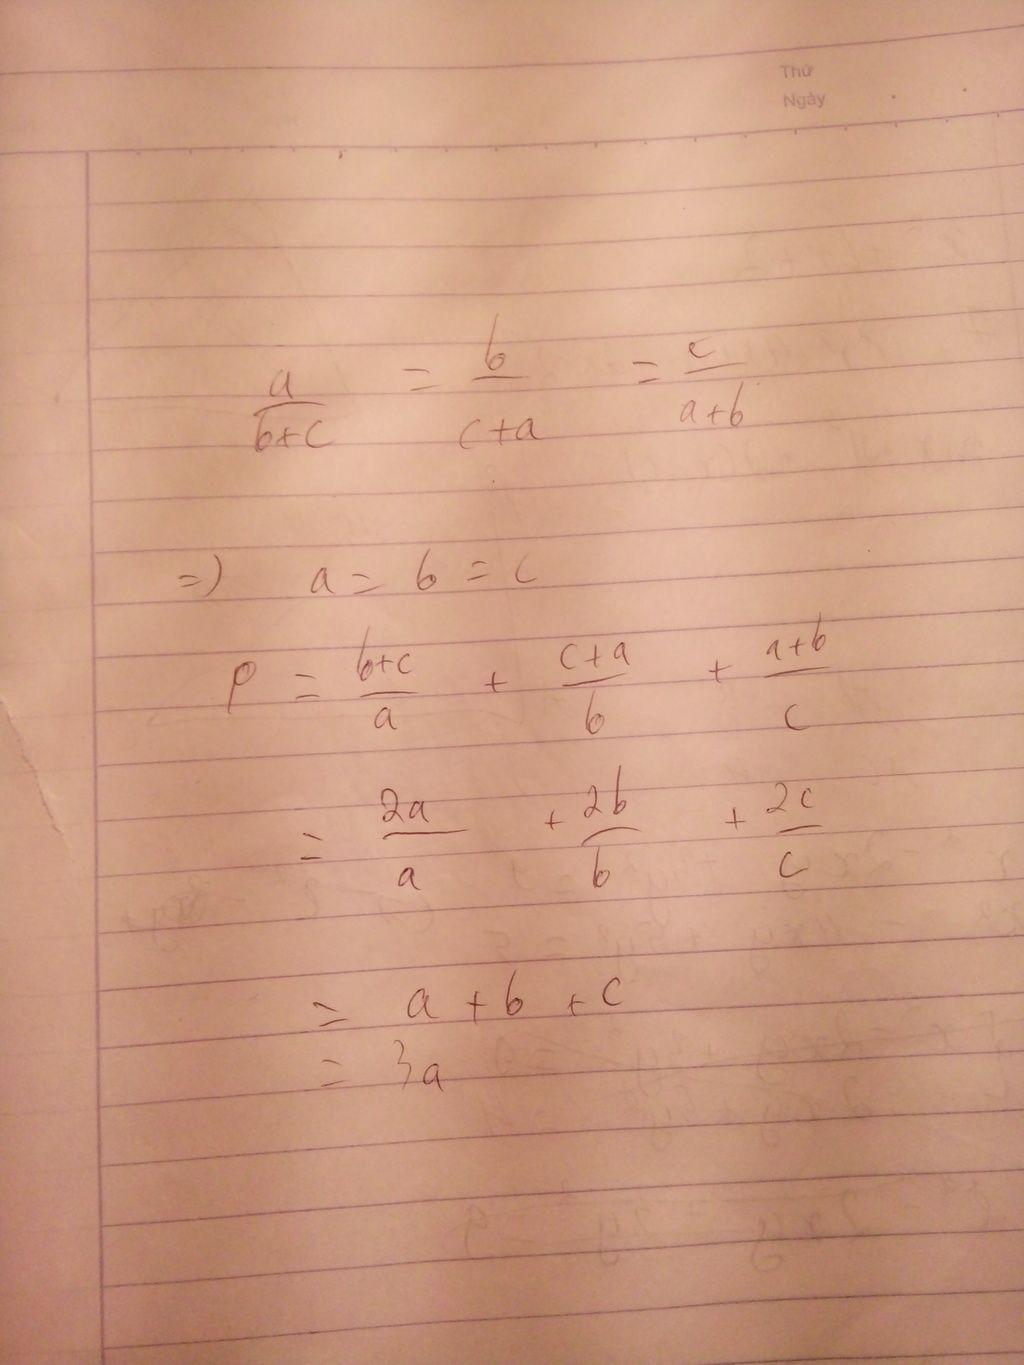 Thứ
Ngày
a/(b+c) = b/(c+a) = c/(a+b)
=) a = b = c
P = (b+c)/a + (c+a)/b + (a+b)/c
= 2a/a + 2b/b + 2c/c
= a + b + c
= 3a